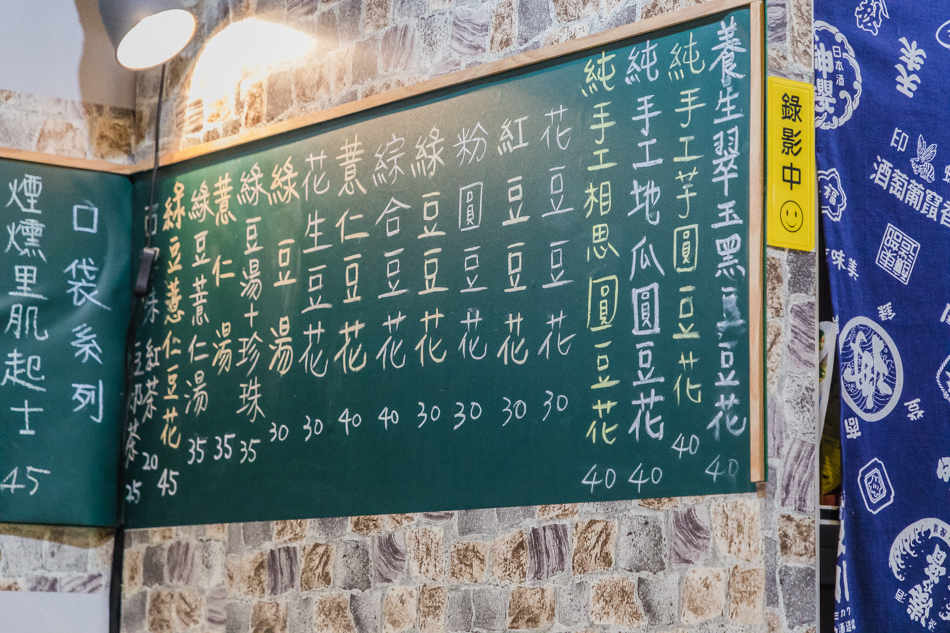 養生翠玉黑豆豆花 40
純手工芋圓豆花 40
純手工地瓜圓豆花 40
純手工相思圓豆花 40
花豆豆花 30
紅豆豆花 30
粉圓豆花 30
綠豆豆花 30
綜合豆花 40
薏仁豆花 40
花生豆花 30
綠豆湯 30
綠豆湯+珍珠 35
薏仁湯 35
綠豆薏仁湯 35
綠豆薏仁豆花 45
紅茶 20
茶 25
口袋系列
煙燻里肌起士 45
錄影中
日本酒
福
印
酒葡萄
味美